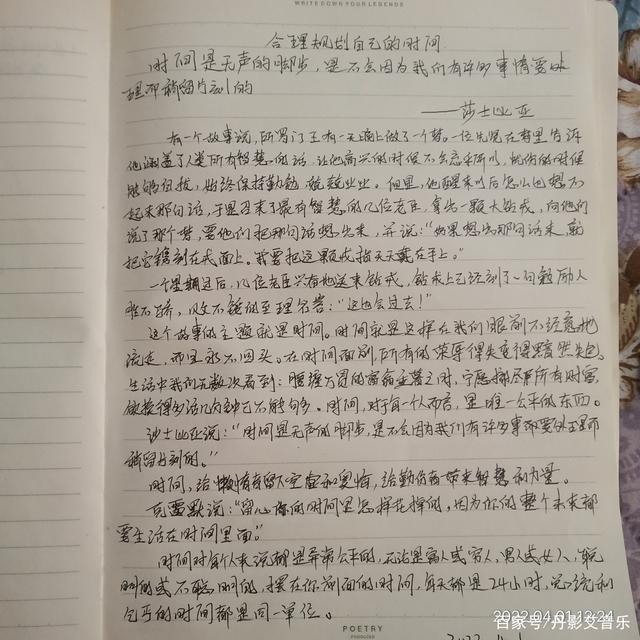 WRITE DOWN YOUR LEGENDS
合理规划自己的时间
时间是无声的脚步,是不会因为我们有许多事情要处
理而稍留片刻的
——莎士比亚
有一个故事说,所罗门王有一天晚上做了一个梦。一位先贤在梦里告诉
他涵盖了人类所有智慧的话,让他高兴的时候不会忘乎所以,忧伤的时候
能够自拔,始终保持勤勉,兢兢业业。但是,他醒来以后怎么也想不
起来那句话,于是召来了最有智慧的几位老臣,拿出一颗大钻戒,向他们
说了那个梦,要他们把那句话想出来,并说:“如果想出那句话来,就
把它镌刻在戒面上。我要把这颗戒指天天戴在手上。”
一个星期过后,几位老臣兴奋地送来钻戒,钻戒上已经刻了一句勉励人
胜不骄,败不馁的至理名言:“这也会过去!”
这个故事的主题就是时间。时间就是这样在我们眼前不经意地
流走,而且永不回头。在时间面前,所有的荣辱得失变得黯然失色。
生活中我们无数次看到:腰缠万贯的富翁垂暮之时,宁愿掷尽所有财富,
做换得多活几分钟也不能够多。时间,对于每一个人而言,是唯一公平的东西。
莎士比亚说:“时间是无声的脚步,是不会因为我们有许多事要处理而
稍留片刻的。”
时间,给懒惰者留下空虚和懊悔,给勤奋者带来智慧和力量。
克雷默说:“留心你的时间是怎样花掉的,因为你的整个未来都
要生活在时间里面。”
时间对每个人来说都是异常公平的,无论是富人或穷人,男人或女人,聪
明的或不聪明的,摆在你前面的时间,每天都是24小时,总统和
乞丐的时间都是同一单位。
POETRY
2022.04.01 12:24
百家号/丹影文音乐